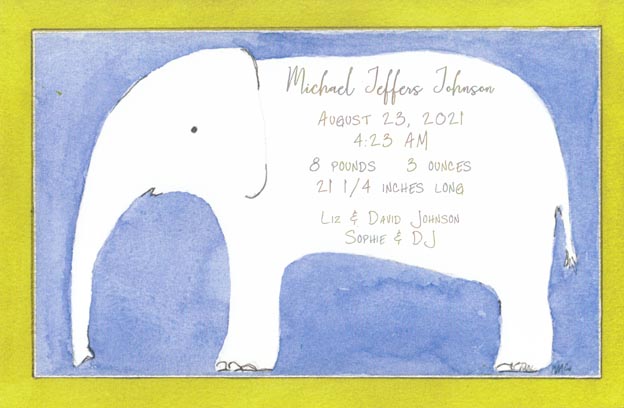 Michael Jeffers Johnson
August 23, 2021
4:23 AM
8 pounds 3 ounces
21 1/4 inches long
Liz & David Johnson
Sophie & DJ